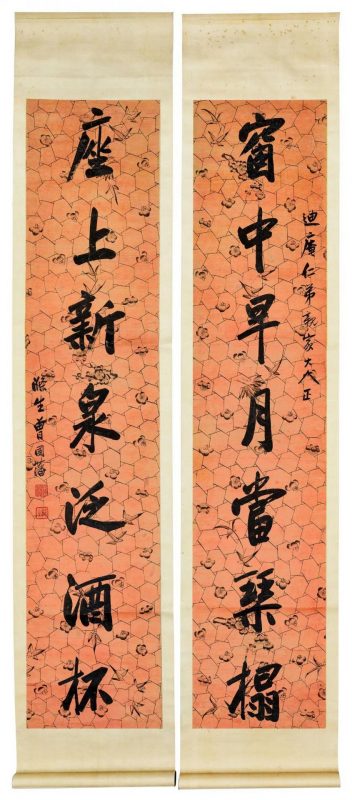 迪仁弟親家大人正
窗中早月當琴榻
座上新泉泛酒杯
滌生曾國藩